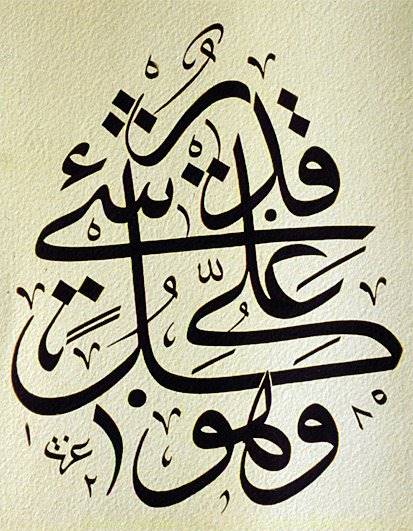 وهو على كل شئ قدير